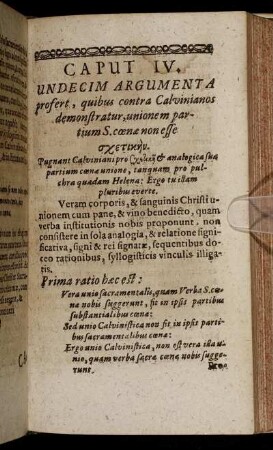 CAPUT IV.
UNDECIM ARGUMENTA
profert, quibus contra Calvinianos
demonstratur, unionem par-
tium S. cœnæ non esse
σχετικήν.
Pugnant Calviniani pro & analogica sua
partium cœnæ unione, tanquam pro pul-
chra quadam Helena: Ergo tu istam
pluribus everte.
Veram corporis, & sanguinis Christi u-
nionem cum pane, & vino benedicto, quam
verba institutionis nobis proponunt, non
consistere in sola analogia, & relatione signi-
ficativa, signi & rei signatæ, sequentibus do-
ceo rationibus, syllogisticis vinculis illiga-
tis.
Prima ratio hæc est:
Vera unio sacramentalis, quam Verba S. cœ-
næ nobis suggerunt, fit in ipsis partibus
substantialibus cœnæ:
Sed unio Calvinistica non fit in ipsis parti-
bus sacramentalibus cœnæ:
Ergo unio Calvinistica, non est vera illa u-
nio, quam verba sacræ cœnæ nobis sugge-
runt.